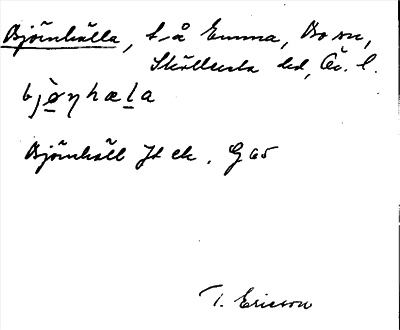 Björnhälla, t. å Emma, Bo sn,
Sköllersta hd, Ör. l.
bjö̀ŋhæḷa
Björnhäll Jt ek. G 65
T. Ericson